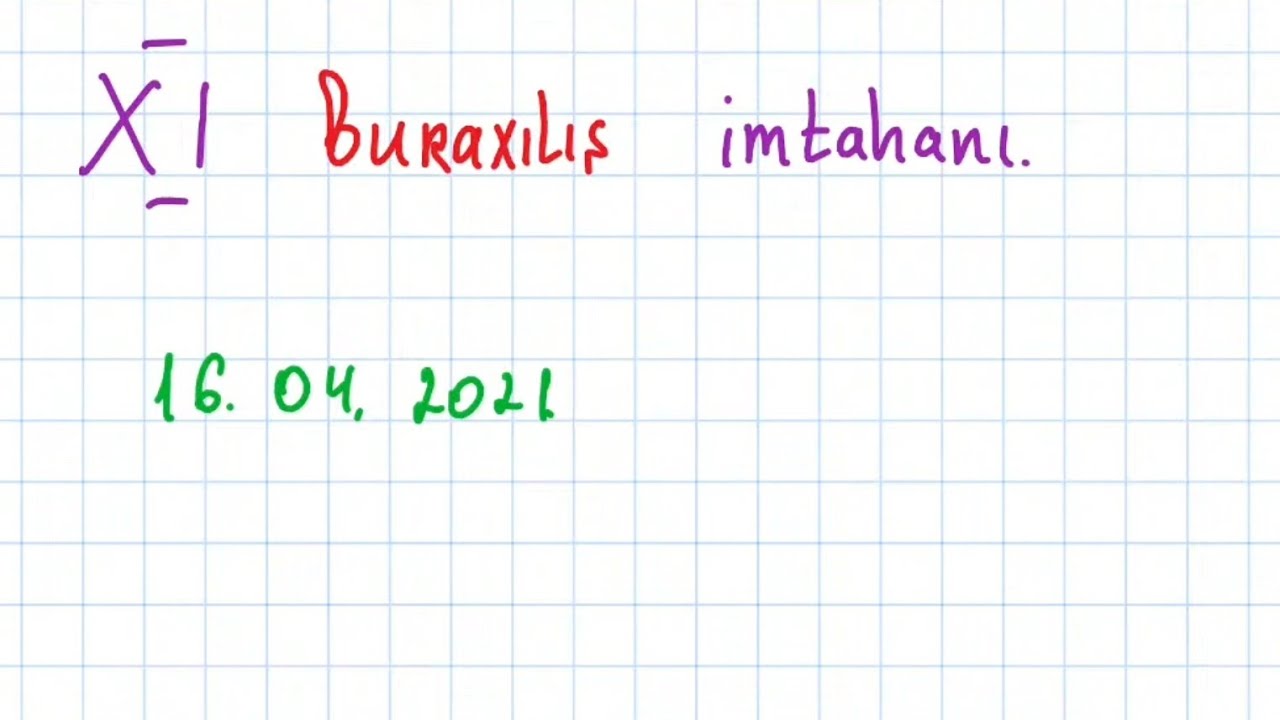 XI Buraxılış imtahanı.
16.04.2021